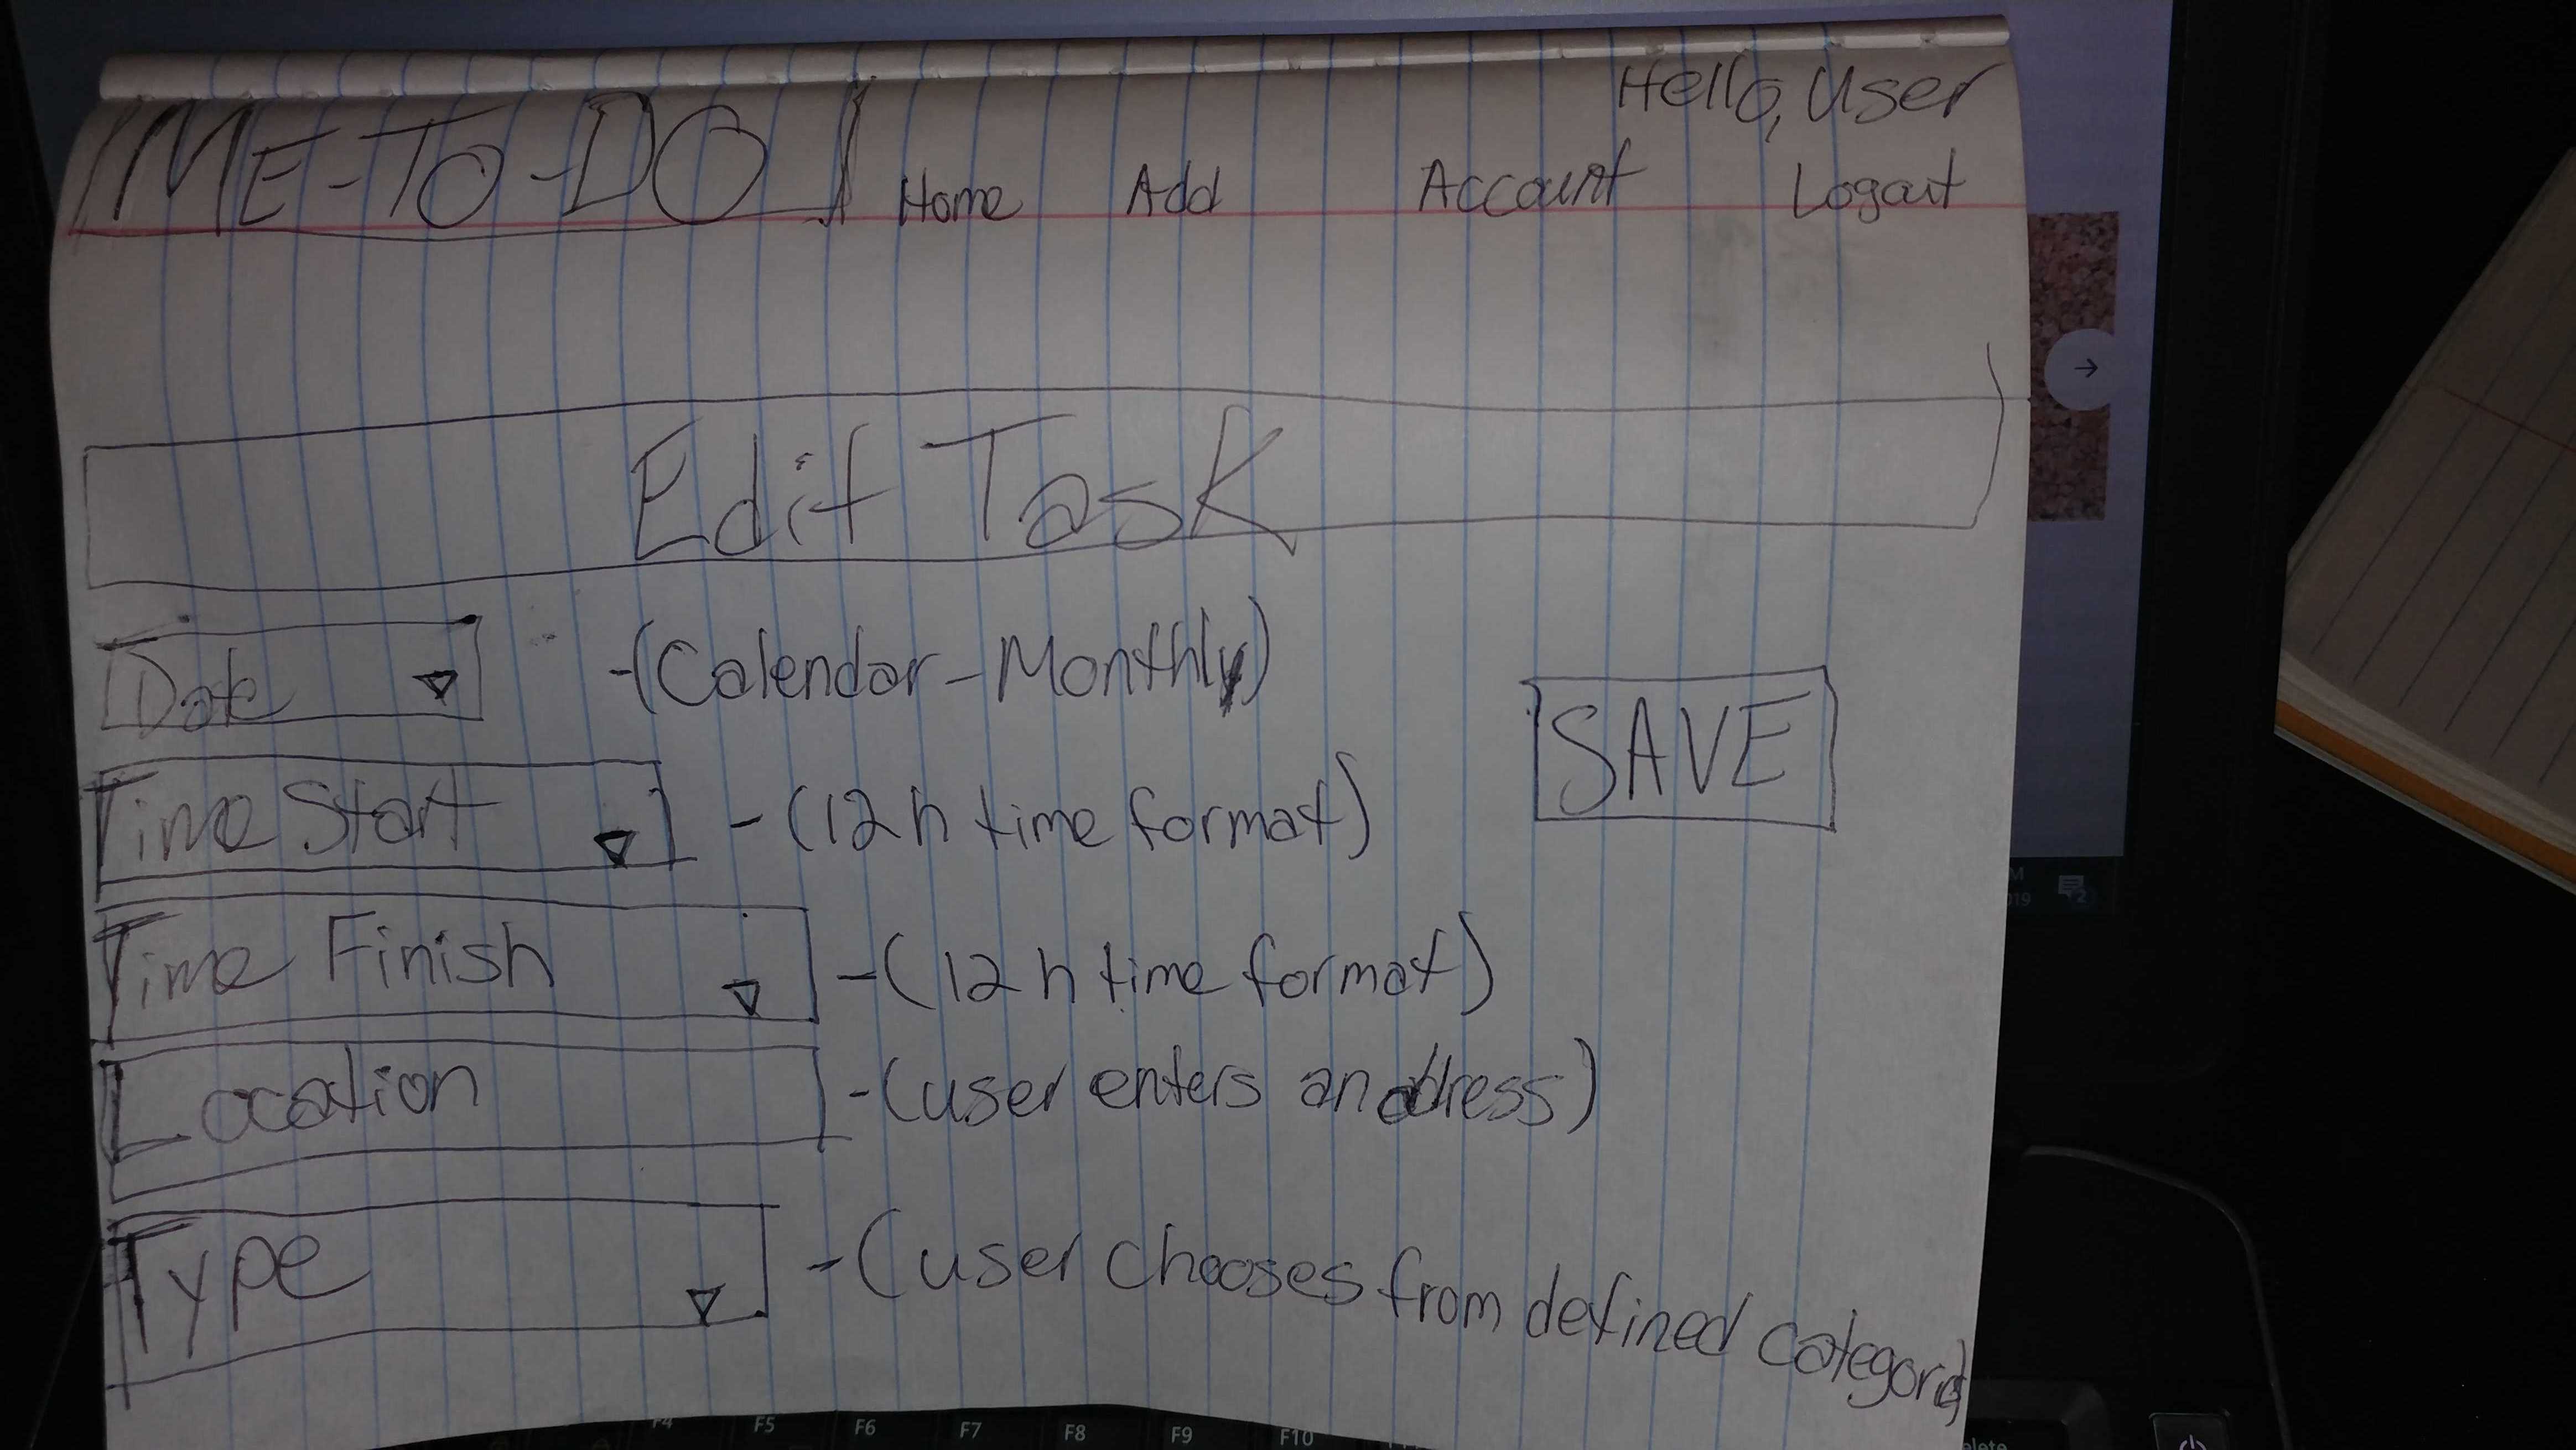 Hello, User
ME-TO-DO Home Add Account Logout
Edit Task
Date -(Calendar-Monthly)
SAVE
Time Start -(12h time format)
Time Finish -(12h time format)
Location -(user enters an address)
Type -(user chooses from defined categories)
2
F4 F5 F6 F7 F8 F9 F10